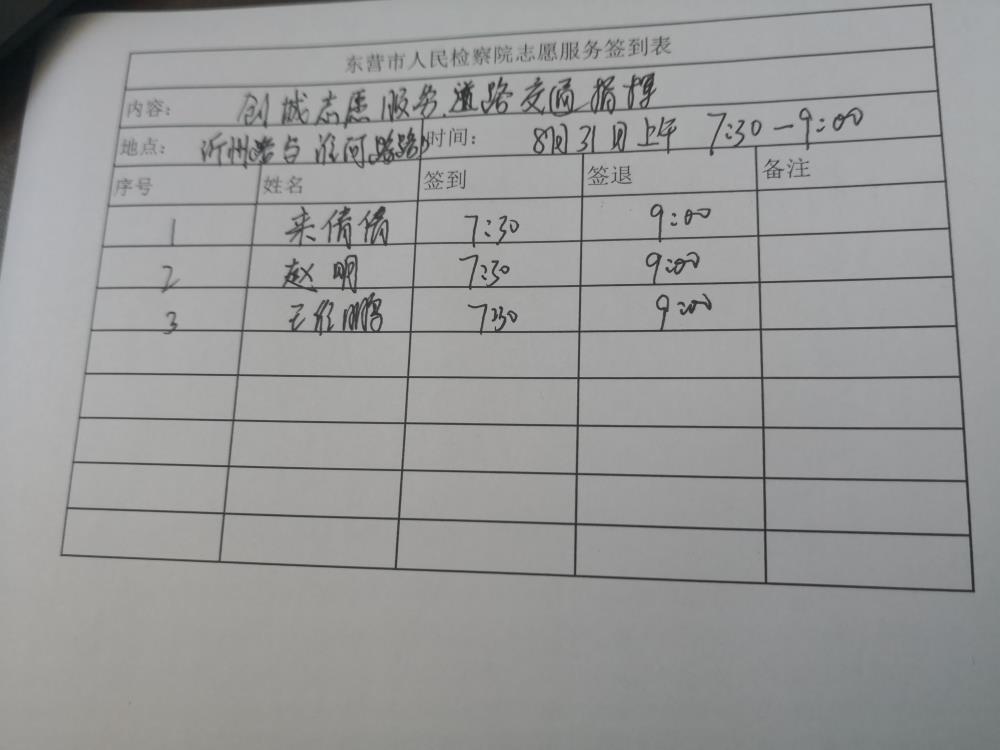 东营市人民检察院志愿服务签到表
内容： 创城志愿服务、道路交通指挥
地点： 沂州路与淮河路路口 时间： 8月31日上午 7:30-9:00
序号 姓名 签到 签退 备注
1 来倩倩 7:30 9:00
2 赵明 7:30 9:00
3 王 鹏 7:30 9:00